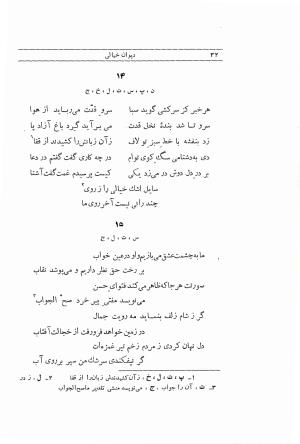 ۳۲ دیوان خیالی
۱۴
ن ، پ ، س ، ت ، ل ، خ ، ج
هر خبر کز سرکشی گوید صبا سرو قدّت می‌رباید از هوا
سرو تا شد بندهٔ نخل قدت می‌برآید گرد باغ آزاد پا
زد بنفشه با خط سبز تو لاف زآن زبانش را کشیدند از قفا
دی به دشنامی سگ کوی توام در چه کاری گفت گفتم در دعا
بر در دل دوش در می‌زد یکی کیست پرسیدم غمت گفت آشنا
سایل اشک خیالی را ز روی
چند رانی نیست آخر روی ما
۱۵
س ، ت ، ل ، ج
ما به چشمت عشق می‌بازیم و او در عین خواب
بر رخت حق نظر داریم و می‌پوشد نقاب
صورتت هر جا که ظاهر می‌کند فتوای حسن
می‌نویسد مفتی پیر خرد صحّ الجواب
گر ز شام زلف بنماید مه رویت جمال
در زمین خواهد فرو رفت از خجالت آفتاب
دل نهان کردی ز مردم زخم تیر غمزه‌ات
گر نیفکندی سرشک من سپر بر روی آب
۱ـ پ ، ت ، ل ، خ ، زآن کشیدندش زبان را از قفا ۲ـ ل ، ز در
۳ـ ت ، آن را جواب ، ج ، می‌نویسد منشی تقدیر ماصح‌الجواب